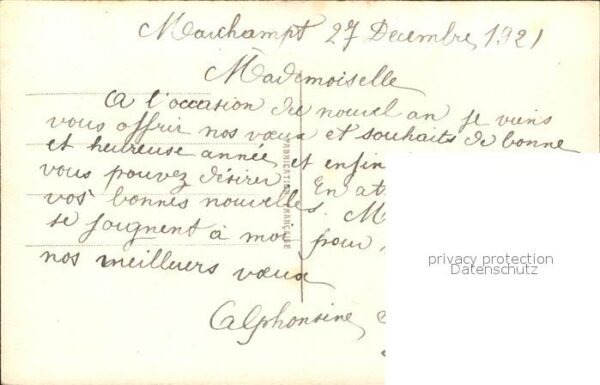 Marchampt 27 Decembre, 1921
Mademoiselle
A l'occasion du nouvel an je viens
vous offrir nos vœux et souhaits de bonne
et heureuse année et enfin
vous pouvez désirer. En at
vos bonnes nouvelles. M
se joignent à moi pour
nos meilleurs vœux
Alphonsine
FABRICATION FRANÇAISE
privacy protection
Datenschutz